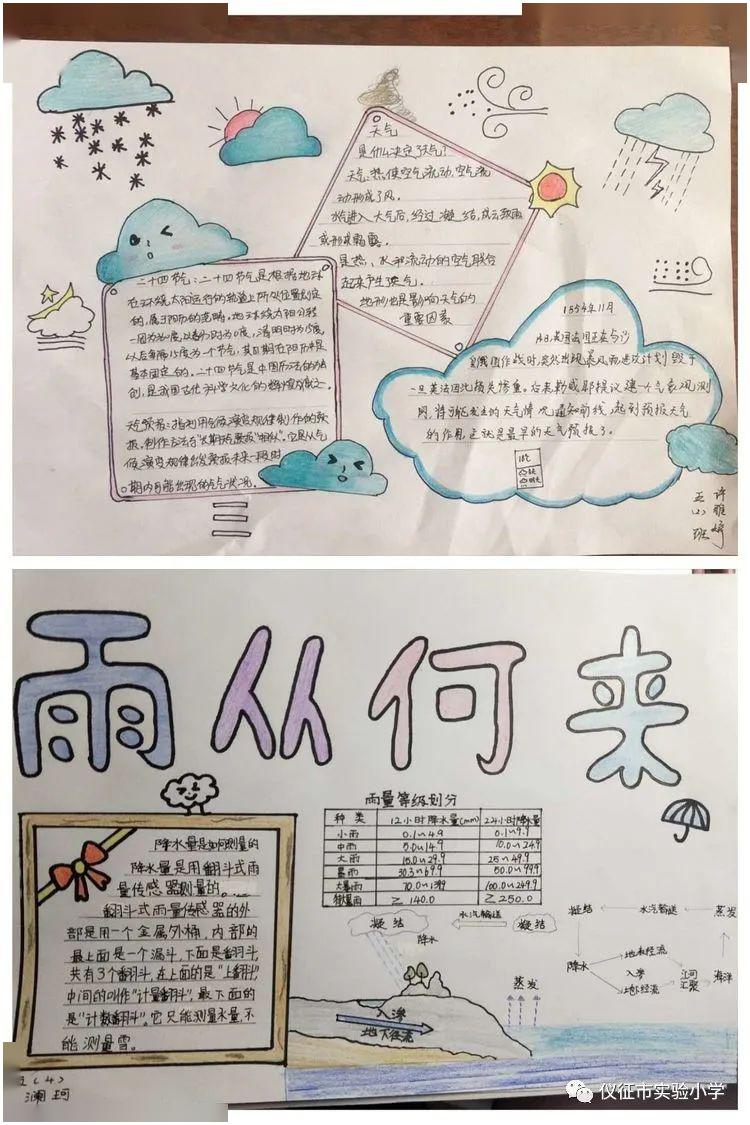 天气
是什么决定了天气？
天气：热使空气流动，空气流
动形成了风。
水给进入大气后，经过凝结，成云致雨
或形成霜露。
是热、水和流动的空气联合
起来产生天气。
地形也是影响天气的
重要因素
二十四节气：二十四节气是根据地球
在环绕太阳运行的轨道上所处位置划定
的，属于阳历的范畴，地球绕太阳公转
一圈为360度，以春分时为0度，清明时为15度，
以后每隔15度为一个节气，其日期在阳历中是
基本固定的。二十四节气是中国历法的独
创，是我国古代科学文化的辉煌成就之一
天气预报：指利用气候演变规律制作的预
报，制作方法有
候演变规律出发预报未来一段时
期内可能出现的天气状况。
1854年11月
14日，英国法国正在与沙
俄国作战时，突然出现暴风雨进攻计划毁于
一旦英法因此损失惨重。后来勒威耶模议建一个气象观测
网，将可能发生的天气情况通知前线，起到预报天气
的作用，这就是最早的天气预报了。
五(4)班
许雅婷
雨从何来
降水量是如何测量的
降水量是用翻斗式雨
量传感器测量的。
翻斗式雨量传感器的外
部是用一个金属外桶，内部的
最上面是一个漏斗，下面是翻斗，
共有3个翻斗，在上面的是“上翻斗”
中间的叫作“计量翻斗”，最下面的
是“计数翻斗”。它只能测量水量，不
能测量雪。
雨量等级划分
种类 12小时降水量(mm) 24小时降水量
小雨 0.1~4.9 0.1~9.9
中雨 5.0~14.9 10.0~24.9
大雨 15.0~29.9 25~49.9
暴雨 30.3~69.9 50.0~99.9
大暴雨 70.0~139 100.0~249.9
特暴雨 ≥140.0 ≥250.0
凝结 水汽输送 凝结
降水
蒸发
入渗
地下径流
凝结 水汽输送 蒸发
降水 地表径流
入渗 江河汇聚 海洋
地下径流
(4)
澜珂
仪征市实验小学